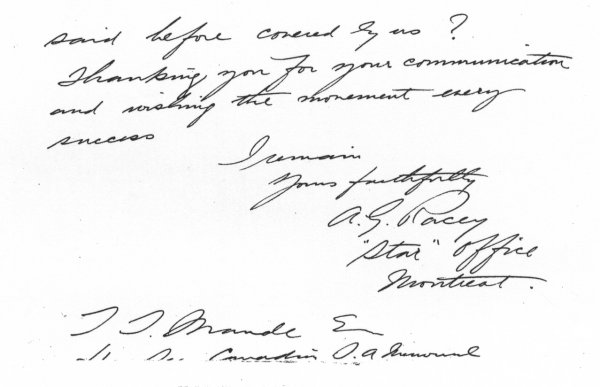 said before covered by us?
Thanking you for your communication
and wishing the movement every
success
I remain
Yours faithfully
A. G. Racey
"Star" Office
Montreal.
Canadian S. A. Memorial